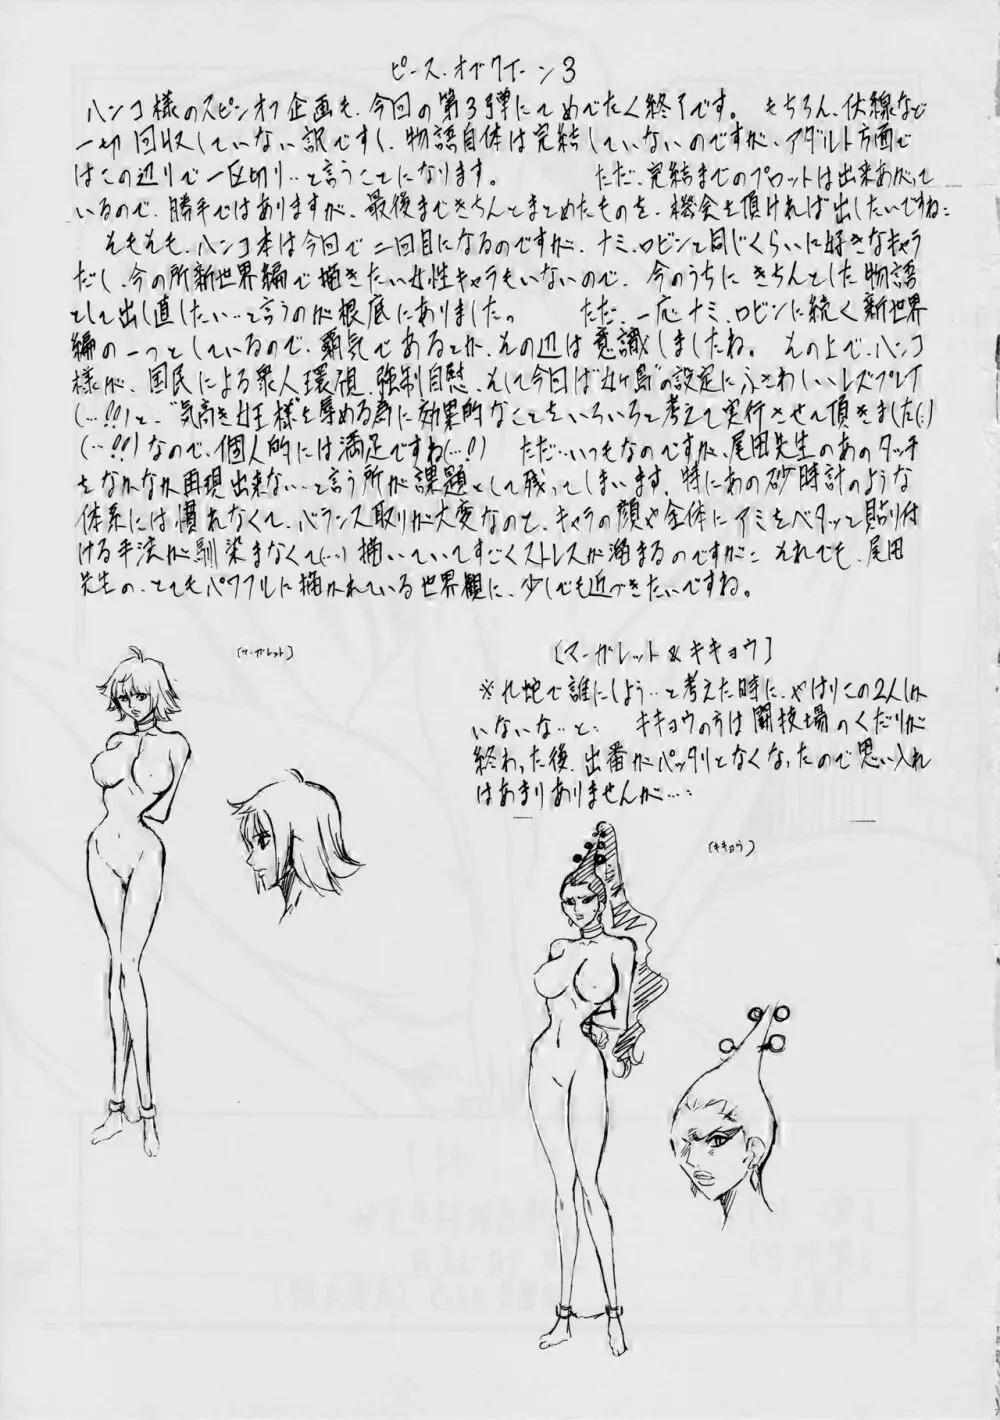 ピース・オブクイーン3
ハンコ様のスピンオフ企画も、今回の第3弾にてめでたく終了です。 もちろん、伏線など
一切回収していない訳ですし、物語自体は完結していないのですが、アダルト方面で
はこの辺りで一区切り‥と言うことになります。 ただ、完結までのプロットは出来あがって
いるので、勝手ではありますが、最後まできちんとまとめたものを、機会を頂ければ出したいですね:
そもそも、ハンコ本は今回で二回目になるのですが、ナミ、ロビンと同じくらいに好きなキャラ
だし、今の所新世界編で描きたい女性キャラもいないので、今のうちに きちんとした物語
として出し直したい‥と言うのが根底にありました。 ただ、一応ナミ、ロビンに続く新世界
編の一つとしているので、覇気であるとか、その辺は意識しましたね。 その上で、ハンコ
様が、国民による衆人環視、強制自慰、そして今回は“女ヶ島”の設定にふさわしいレズプレイ
(…!!)と、“気高き女王様”を辱める為に効果的なことをいろいろと考えて実行させて頂きました(:)
(…!!)なので、個人的には満足ですね(…!) ただ…いつもなのですが、尾田先生のあのタッチ
をなかなか再現出来ない…と言う所が課題として残ってしまいます。特にあの砂時計のような
体系には慣れなくて、バランス取りが大変なのと、キャラの顔や全体にアミをベタッと貼り付
ける手法が馴染まなくて(…) 描いていてすごくストレスが溜まるのですが: それでも、尾田
先生の、とてもパワフルに描かれている世界観に、少しでも近づきたいですね。
〔マーガレット〕
〔マーガレット&キキョウ〕
※九蛇で誰にしよう‥と考えた時に、やはりこの2人しか
いないな‥と: キキョウの方は闘技場のくだりが
終わった後、出番がパッタリとなくなったので思い入れ
はあまりありませんが…:
〔キキョウ〕